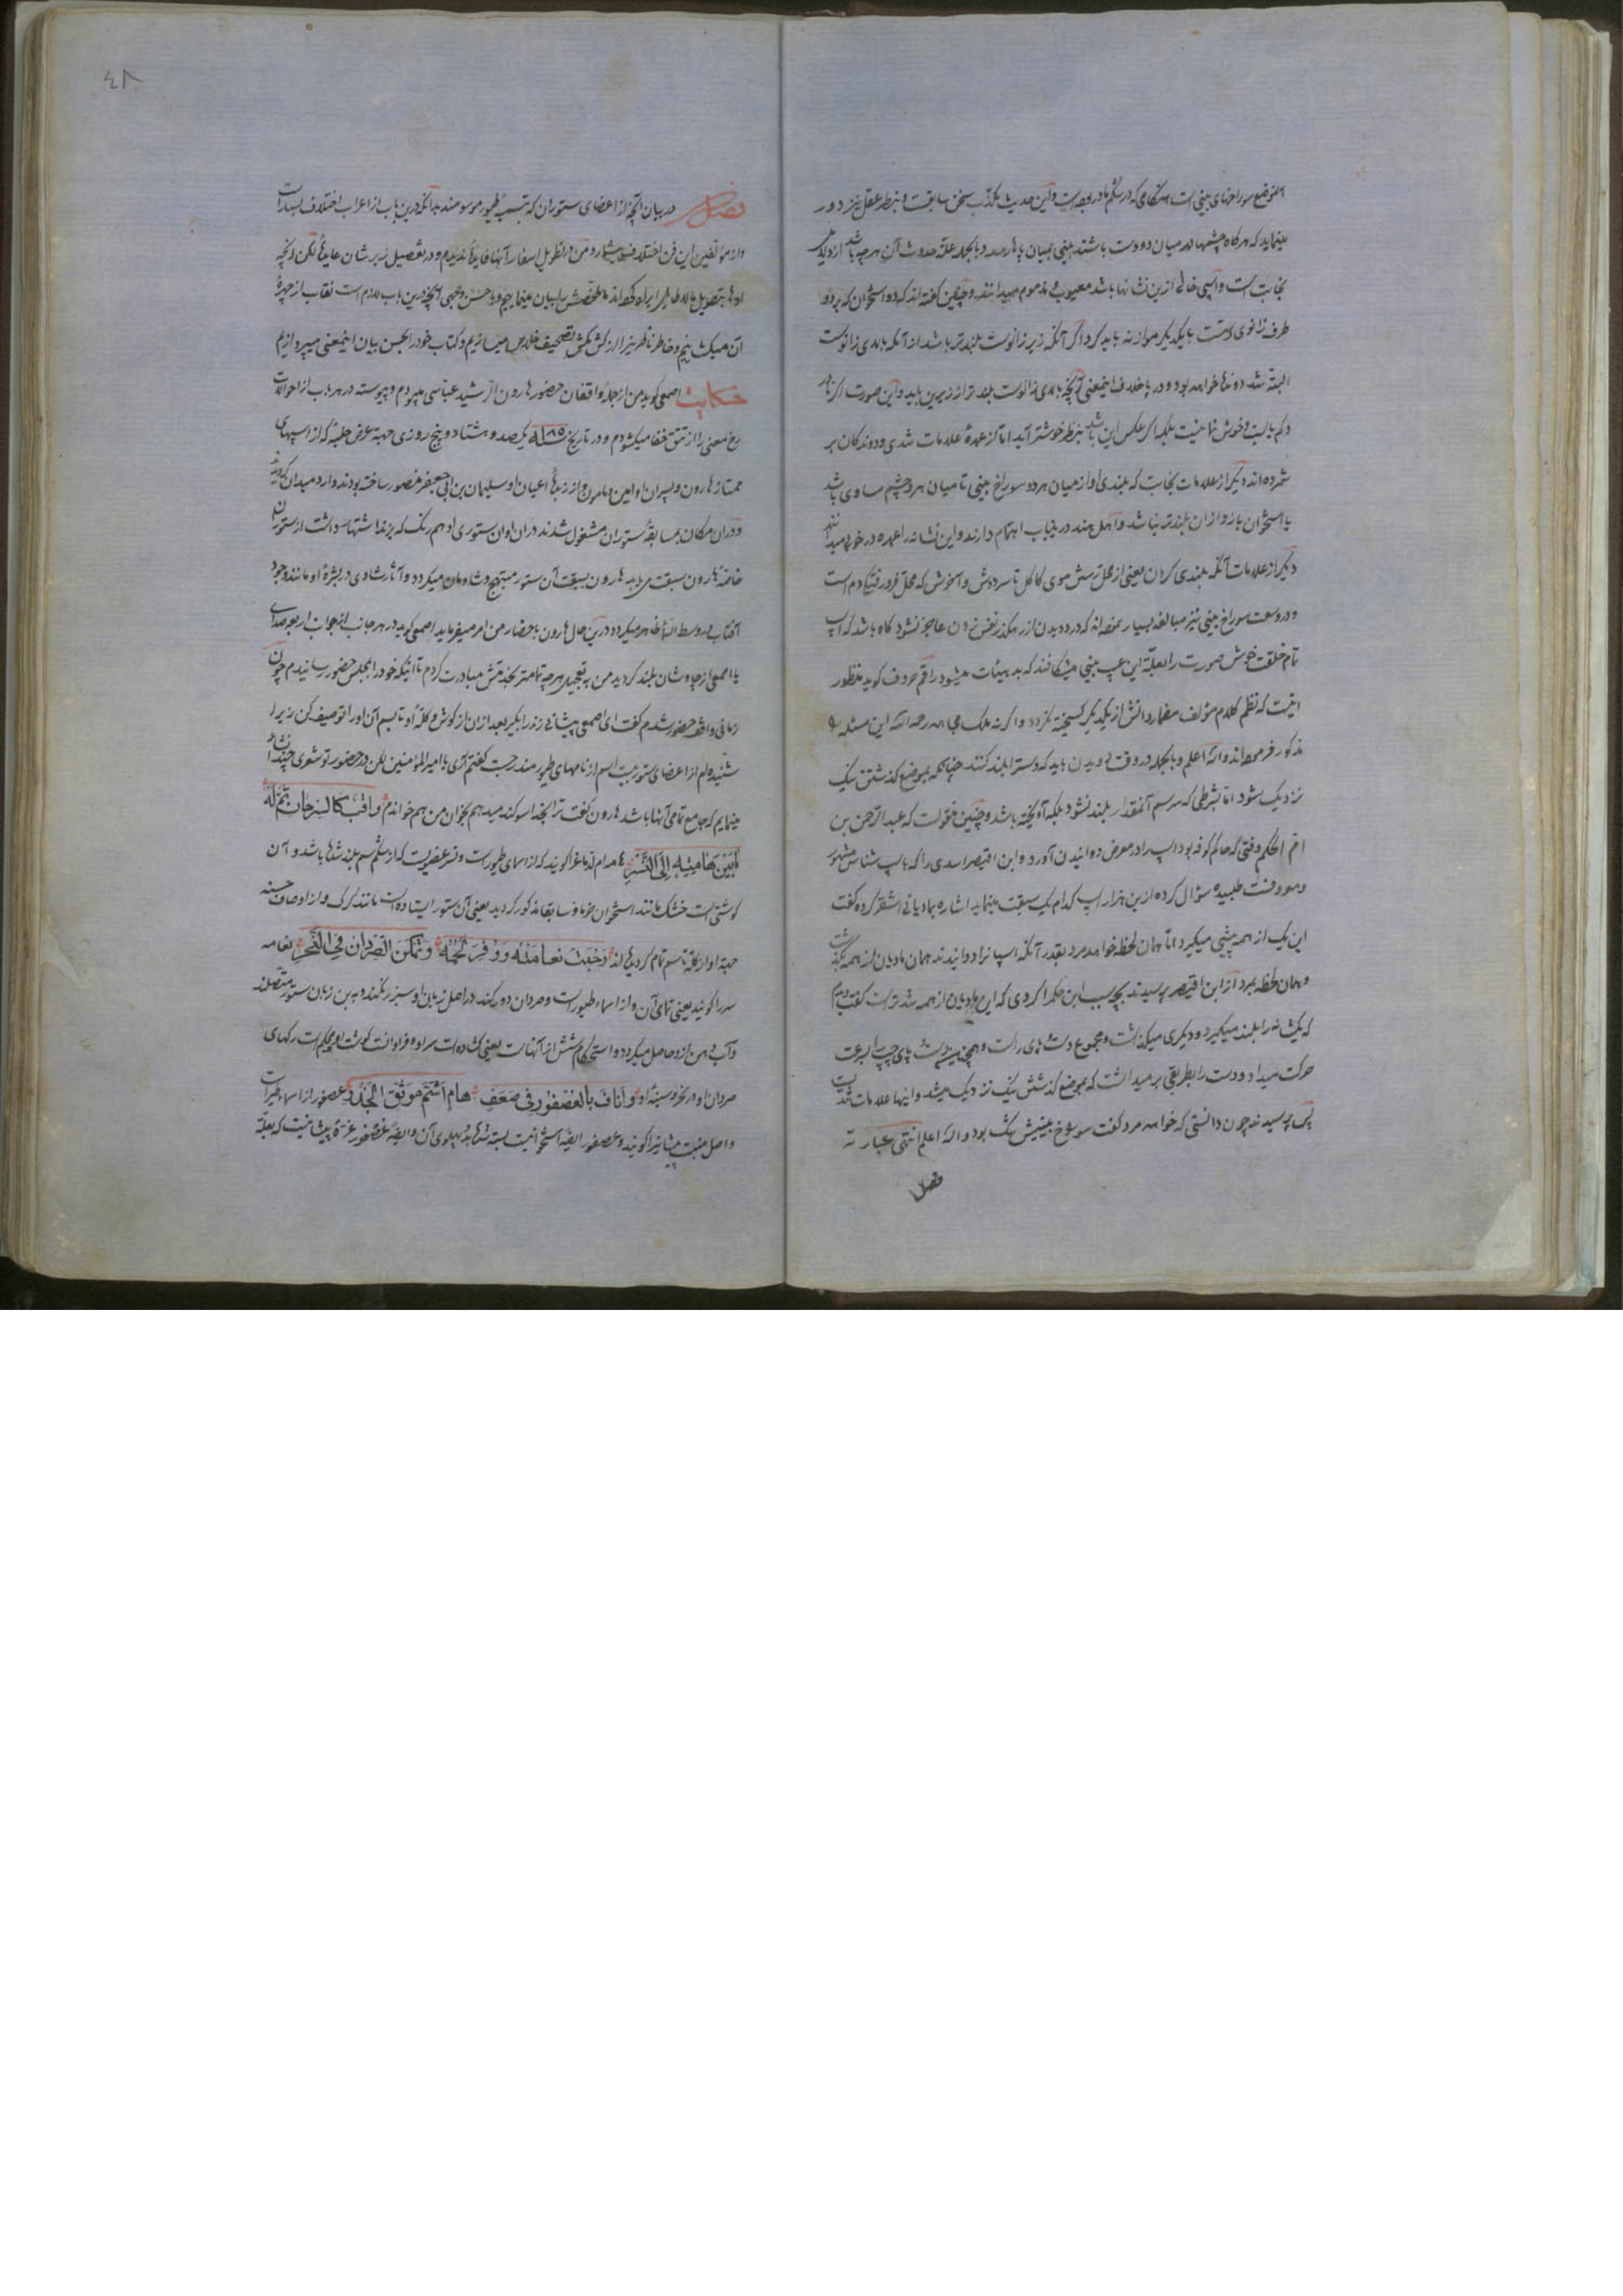 موضع سوراخهای بینی است هنگامی که در شکم مادر بوده است و این حدیث مکذب سخن سابقت و بنظر عقل نیز دور
مینماید که هرگاه چشمها در میان دو دست باشند بینی بمیان پاها رسد و بالجمله علة حدوث آن هر چه باشد از دلایل
نجابت است و اسپی خالی ازین نشانها باشد معیوب و مذموم میدانند و چنین گفته اند که دو استخوان که بر دو
طرف زانوی دست با یکدیگر موازنه باید کرد اگر آنکه زیر زانوست بلندتر باشد از آنکه بالای زانوست
البته تند دونده خواهد بود و در پا خلاف اینمعنی آنچه بالای زانوست بلندتر از زیرین باید و این صورت اگر چه
و کم یابست و خوش نما نیست بلکه اگر عکس این باشد بنظر خوشتر آید اما از عمدهٔ علامات تندی و دوندکان بر
شمرده اند دیگر از علامات نجابت که بلندی او از میان هر دو سوراخ بینی تا میان هر دو چشم مساوی باشد
با استخوان بازو ازان بلندتر نباشد و اهل هند درینباب اهتمام دارند و این نشانه را عمده در خوبی میدانند
دیگر از علامات آنکه بلندی کردن یعنی از محل رستن موی کاکل تا سر دوش و آخرش که محل فرو رفتگی دم است
و در وسعت سوراخ بینی نیز مبالغه بسیار نموده اند که در دویدن از رهکذر نفس زدن عاجز نشود گاه باشد که اسپ
تمام خلقت خوش صورت را بعلة این عیب بینی میشکافند که بد هیئات میشود راقم حروف گوید منظور
اینست که نظم کلام مؤلف مضمار دانش از یکدیگر گسیخته نگردد واگرنه ملک مجاهد رحمه الله این مسئله را
مذکور فرموده اند والله اعلم و بالجمله در وقت دویدن باید که دستر ا بلند کنند چنانکه بموضع گذشتن تنگ
نزدیک شود اما بشرطی که سر سم آنمقدار بلند نشود بلکه آویخته باشد و چنین منقولست که عبد الرحمن بن
ام الحکم وقتی که حاکم کوفه بود اسپ را در معرض دوانیدن آورد و ابن اقیصر اسدی را که باسپ شناسی مشهور
و معروفست طلبیده سؤال کرده ازین هزار اسپ کدام یک سبقت مینماید اشاره بمادیانی اشقر کرده گفت
این یک از همه پیشی میگیرد اما همان لحظه خواهد مرد بعد از آنکه اسپان را دوانیدند همان مادیان از همه گذشت
و همان لحظه بمرد از ابن اقیصر پرسیدند بچه سبب این حکم را کردی که این مادیان از همه تندتر است گفت دیدم
که یک شانه را بلند میگیرد و دیگری میگذاشت و مجموع دست های راست و همچنین دست پای چپ السرعت
حرکت میداد و دست را بطریقی بر میداشت که بموضع گذشتن تنگ نزدیک میشد و اینها علامات تندیست
پس پرسیدند چون دانستی که خواهد مرد گفت سوراخ بینیش تنگ بود والله اعلم انتهی عبارته
فصل
٤٨
فصل در بیان آنچه از اعضای ستوران که تسمیه طیور موسومند بدانکه درین باب از اعراب اختلاف بسیار است
و از مؤلفین این فن اختلاف بیشمار و من در تطویل اسفار آنها فایدهٔ ندیدم و در تفصیل زبرشان عایدهٔ لکن آنچه
ادبا بتطویل بلا طایل ایراد کرده اند ما ملخصش را بیان مینماییم و باحسن وجهی آنچه درین باب لازم است نقاب از چهرهٔ
آن میکشاییم و خاطر ناظر نیز را از کش مکش تصحیف خلاص میسازیم و کتاب خود را بحسن بیان اینمعنی میپردازیم
حکایت اصمعی گوید من از جملهٔ واقفان حضور هارون الرشید عباسی میبودم و پیوسته در هر باب از احوالات
رخ معنی را از تتق خفا میکشودم و در تاریخ سنه ۱۸۵ یکصد و هشتاد و پنج روزی جهة عرض حلبهٔ که از اسپهای
ممتاز هارون و پسران او امین و مامون و از زبدهٔ اعیان او سلیمان بن ابی جعفر منصور ساخته بودند وارد میدان گردیدند
و دران مکان بمسابقه ستوران مشغول شدند دران اوان ستوری ادهم رنگ که بزبد اشتهار داشت از ستوران
خاصه هارون سبقت می یابد هارون بسبقت آن ستور مبتهج و شادمان میگردد و آثار شادی در بشرهٔ او مانند وجود
آفتاب در وسط السماء ظاهر میگردد درین حال هارون باحضار من امر میفرماید اصمعی گوید در هر جانب از جوانب اربعه صدای
یا اصمعی از چاوشان بلند گردید من بتعجیل هر چه تمامتر بخدمتش مبادرت کردم تا اینکه خود را بمجلس حضور رسانیدم چون
زمانی واقف حضور شدم گفت ای اصمعی پیشانی زبد را بگیر بعد ازان از گوش و کلهٔ او تا بسم آن او را توصیف کن زیرا
شنیده ام از اعضای ستور بیست اسم از نامهای طیور مندرجست گفتم آری یا امیر المؤمنین لکن در حضور تو شعری چند انشاد
مینمایم که جامع تمامی آنها باشد هارون گفت ترا بخدا سوگند میدهم بخوان من هم خواندم وَاَقَبَّ کَالسِّرحانِ تَمَّ لَهُ
مَابَینَ هَامَتِهِ اِلَی النَّسرِ هامه ام الدماغ را گویند که از اسمای طیورست و نسر عضویست که از شکم سم بلند شده باشد و آن
گوشتی است خشک مانند استخوان خرما و سابقا مذکور گردید یعنی آن ستور ایستاده است مانند گرگ و از اوصاف حسنه
جهة او از کله تا سم تمام گردیده اند رَحُبَت نَعَامَتُهُ وَوُفِّرَ لَحمُهُ وَتَمَکَّنَ الصُّردانُ فِی النَّحرِ نعامه
سر را گویند یعنی تمامی آن و از اسماء طیورست و صردان دو رگند در اصل زبان او سبز رنگند و به بن زبان ستور متصلند
و آب دهن ازو حاصل میگردد و استحکام شش از آنهاست یعنی گشاده است سر او و فراوانست گوشت او و محکم است رگهای
صردان او در نحر و سینهٔ او وَاَنافَ بِالعُصفورِ فی سَعَفٍ هامٍ اَشَمَّ مُوَثَّقِ الجَذرِ عصفور از اسماء طیر است
و اصل منبت پیشانی را گویند و عصفور ایضا استخوانیست بسته شده پهلوی آن و ایضا عصفور غرهٔ پیشانیست که بعلة